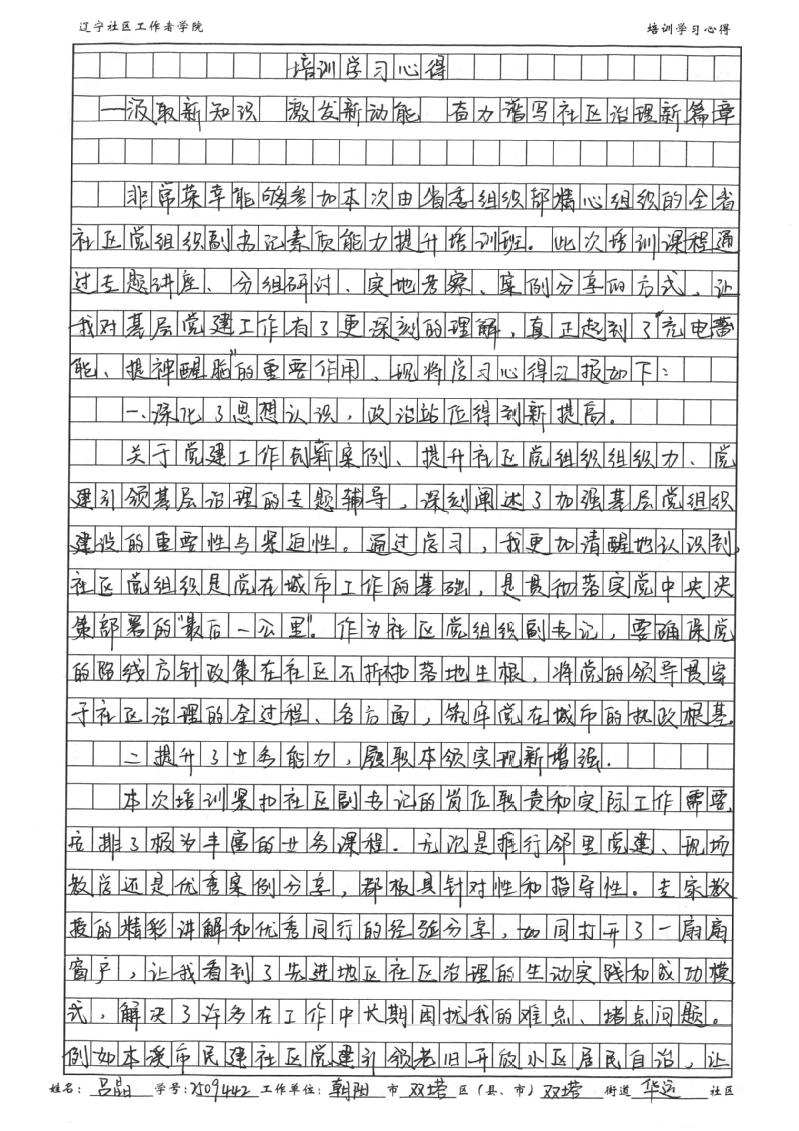 辽宁社区工作者学院 培训学习心得
培训学习心得
—汲取新知识 激发新动能 奋力谱写社区治理新篇章
非常荣幸能够参加本次由省委组织部精心组织的全省
社区党组织副书记素质能力提升培训班。此次培训课程通
过专题讲座、分组研讨、实地考察、案例分享的方式，让
我对基层党建工作有了更深刻的理解，真正起到了“充电蓄
能、提神醒脑”的重要作用，现将学习心得汇报如下：
一、深化了思想认识，政治站位得到新提高。
关于党建工作创新案例、提升社区党组织组织力、党
建引领基层治理的专题辅导，深刻阐述了加强基层党组织
建设的重要性与紧迫性。通过学习，我更加清醒地认识到，
社区党组织是党在城市工作的基础，是贯彻落实党中央决
策部署的“最后一公里”。作为社区党组织副书记，要确保党
的路线方针政策在社区不折不扣落地生根，将党的领导贯穿
于社区治理的全过程、各方面，筑牢党在城市的执政根基。
二提升了业务能力，履职本领实现新增强.
本次培训紧扣社区副书记的岗位职责和实际工作需要
安排了极为丰富的业务课程。无论是推行邻里党建、现场
教学还是优秀案例分享，都极具针对性和指导性。专家教
授的精彩讲解和优秀同行的经验分享，如同打开了一扇扇
窗户，让我看到了先进地区社区治理的生动实践和成功模
式，解决了许多在工作中长期困扰我的难点、堵点问题。
例如本溪市民建社区党建引领老旧开放小区居民自治，让
姓名：吕晶 学号：2509442 工作单位：朝阳 市 双塔 区（县、市） 双塔 街道 华运 社区